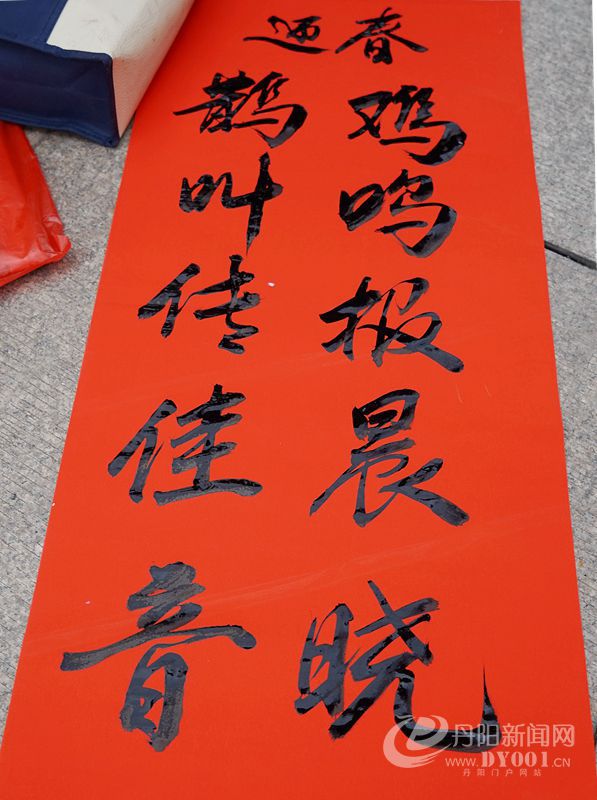 迎春
鸡鸣报晨晓
鹊叫传佳音
丹阳新闻网
WWW.DY001.CN
丹阳门户网站